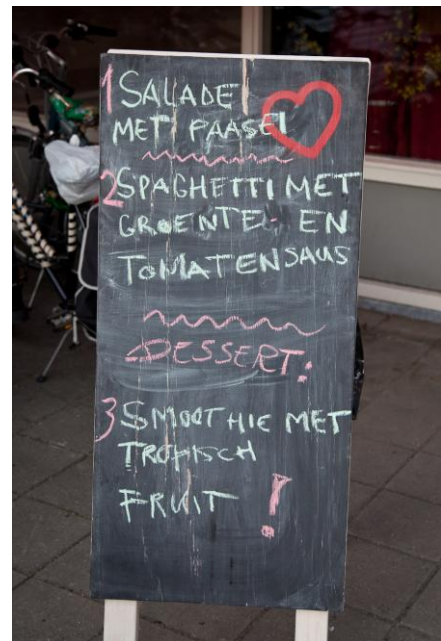 1 SALADE
MET PAASEI
2 SPAGHETTI MET
GROENTE- EN
TOMATENSAUS
DESSERT:
3 SMOOTHIE MET
TROPISCH
FRUIT !